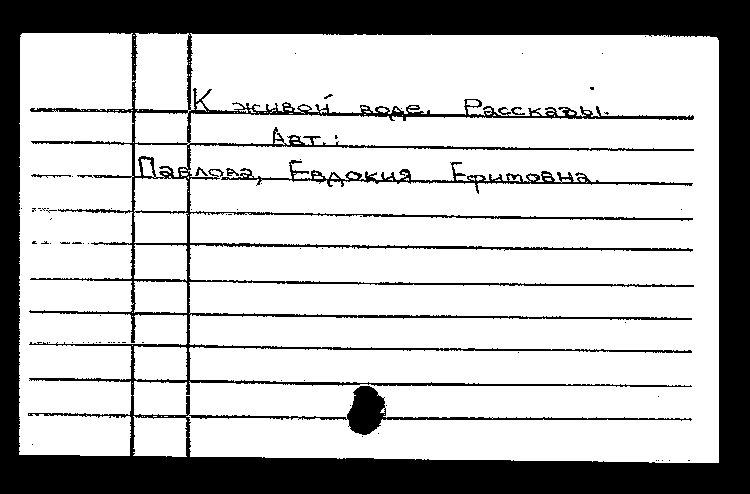 К живой воде. Рассказы.
Авт.:
Павлова, Евдокия Ефимовна.